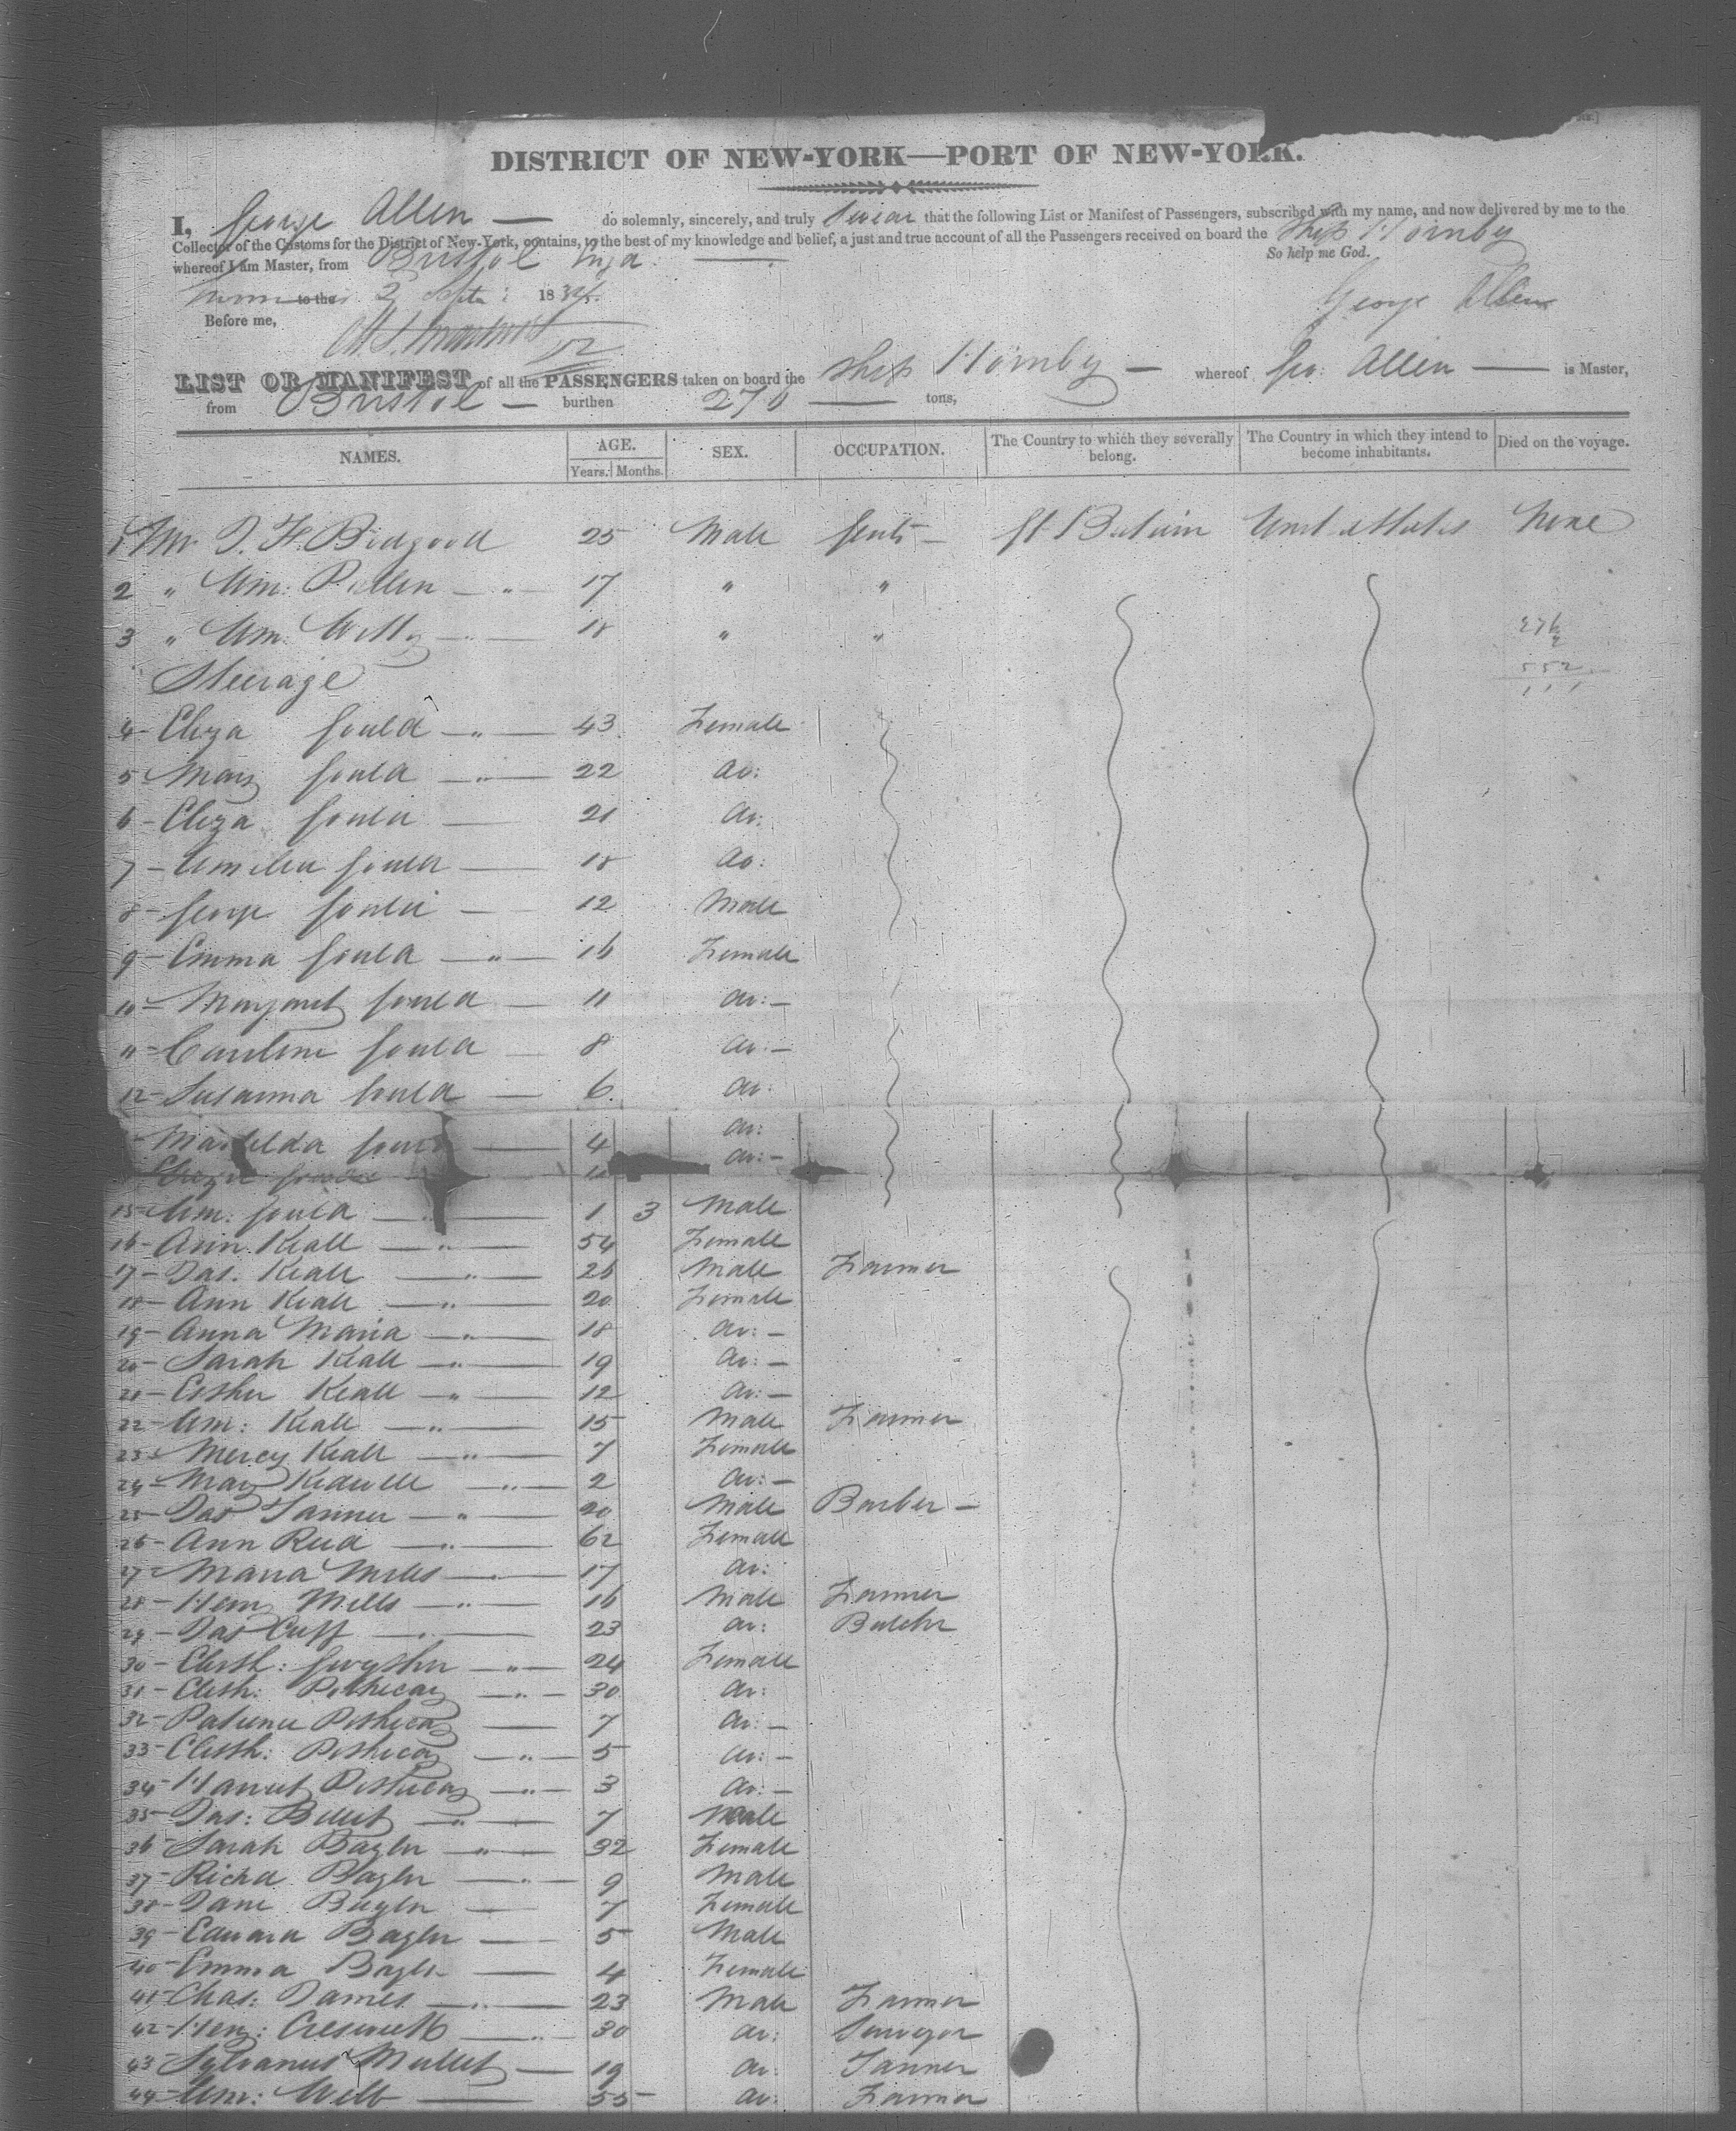 DISTRICT OF NEW-YORK—PORT OF NEW-YORK.
I, George Allen — do solemnly, sincerely, and truly swear that the following List or Manifest of Passengers, subscribed with my name, and now delivered by me to the
Collector of the Customs for the District of New-York, contains, to the best of my knowledge and belief, a just and true account of all the Passengers received on board the Ship Hornby
whereof I am Master, from Bristol So help me God.
to the 2 Septr: 1834. George Allen
Before me,
LIST OR MANIFEST of all the PASSENGERS taken on board the Ship Hornby — whereof Geo: Allen — is Master,
from Bristol — burthen 276 — tons,
NAMES. AGE. Years. Months. SEX. OCCUPATION. The Country to which they severally belong. The Country in which they intend to become inhabitants. Died on the voyage.
1 Mr. J. F. Bidgood 25 Male Gent — Gt Britain United States None
2 " Wm: Pullen — " — 17 " "
3 " Wm. — " — 18 " " 276
2
Steerage 552
4 - Eliza Gould — " — 43 Female
5 - Mary Gould — " — 22 do:
6 - Eliza Gould — 21 do:
7 - Amelia Gould — 18 do:
8 - George Gould — 12 Male
9 - Emma Gould — " — 16 Female
10 - Margaret Gould — 11 do: —
11 - Caroline Gould — 8 do: —
12 - Susanna Gould — 6 do:
Matilda Gould — 4 do:
do: —
15 - Wm: Gould — 1 3 Male
16 - Ann Keall — " — 54 Female
17 - Jas. Keall — " — 26 Male Farmer
18 - Ann Keall — " — 20 Female
19 - Anna Maria — " — 18 do: —
20 - Sarah Keall — " — 19 do: —
21 - Esther Keall — " — 12 do: —
22 - Wm: Keall — " — 15 Male Farmer
23 - Mercy Keall — " — 7 Female
24 - Mary — " — 2 do: —
25 - Jas Tanner — " — 20 Male Barber —
26 - Ann Reed — " — 62 Female
27 - Maria Mills — " — 17 do:
28 - Heny Mills — " — 16 Male Farmer
29 - Jas Cuff — " — 23 do: Butcher
30 - Elizth: — " — 24 Female
31 - Elizth: Pothecay — " — 30 do:
32 - Patience Pothecay — 7 do: —
33 - Elizth: Pothecay — " — 5 do: —
34 - Harriet Pothecay — " — 3 do: —
35 - Jas: Billet — " — 7 Male
36 - Sarah Bagler — " — 32 Female
37 - Richd Bagler — " — 9 Male
38 - Jane Bagler — 7 Female
39 - Edward Bagler — 5 Male
40 - Emma Bagler — 4 Female
41 - Chas: James — " — 23 Male Farmer
42 - Heny: — " — 30 do: Surveyor
43 - Sylvanus Mullet — 19 do: Tanner
44 - Wm: Webb — 55 do: Farmer